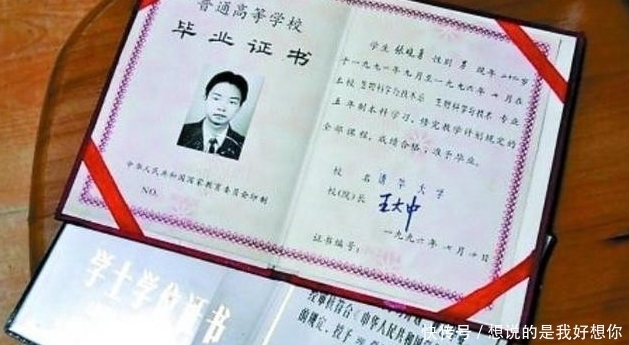 普通高等学校
毕业证书
中华人民共和国国家教育委员会印制
NO.
学生 张晓勇 性别 男 现年 二十二岁
于一九九一年九月至一九九六年七月在
本校 生物科学与技术系 生物科学与技术 专业
五年制本科学习，修完教学计划规定的
全部课程，成绩合格，准予毕业。
校名 清华大学
校(院)长 王大中
一九九六年七月 日
证书编号：
学士学位证书
经审核符合《中华人民共和国
的规定，授予
快传号／想说的是我好想你